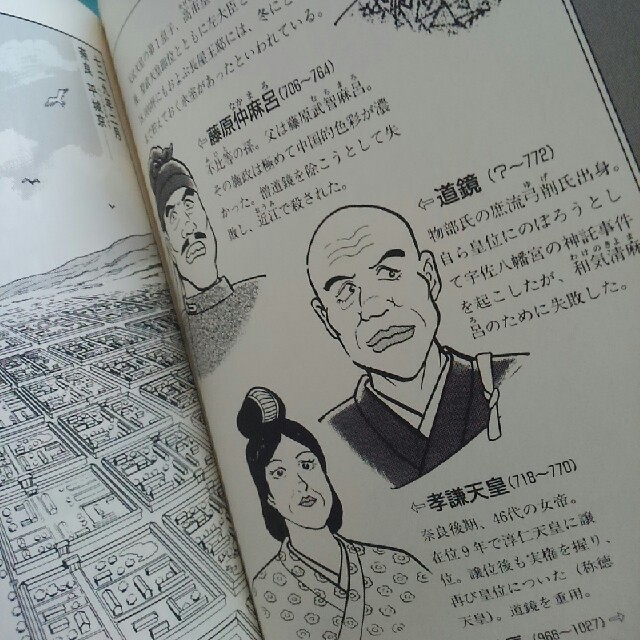 藤原仲麻呂(706～764)
不比等の孫。父は藤原武智麻呂。
その施政は極めて中国的色彩が濃
かった。僧道鏡を除こうとして失
敗し、近江で殺された。
道鏡 (?～772)
物部氏の庶流弓削氏出身。
自ら皇位にのぼろうとし
て宇佐八幡宮の神託事件
を起こしたが、和気清麻
呂のために失敗した。
孝謙天皇(718～770)
奈良後期、46代の女帝。
在位9年で淳仁天皇に譲
位。譲位後も実権を握り、
再び皇位についた(称徳
天皇)。道鏡を重用。